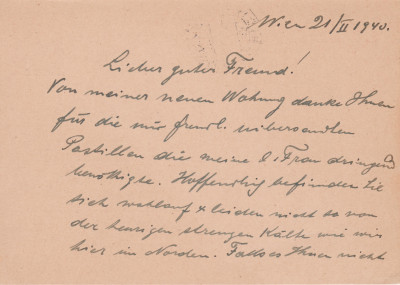 Wien 21/II 1940.
Lieber guter Freund!
Von meiner neuen Wohung danke Ihnen
für die mir freudl. uibersandten
Pastillen die meine l. Frau dringend
benöthigte. Hoffendlich befinden Sie
sich wohlauf & leiden nicht so von
der heurigen strengen Kälte wie wir
hier im Norden. Falls es Ihnen nicht